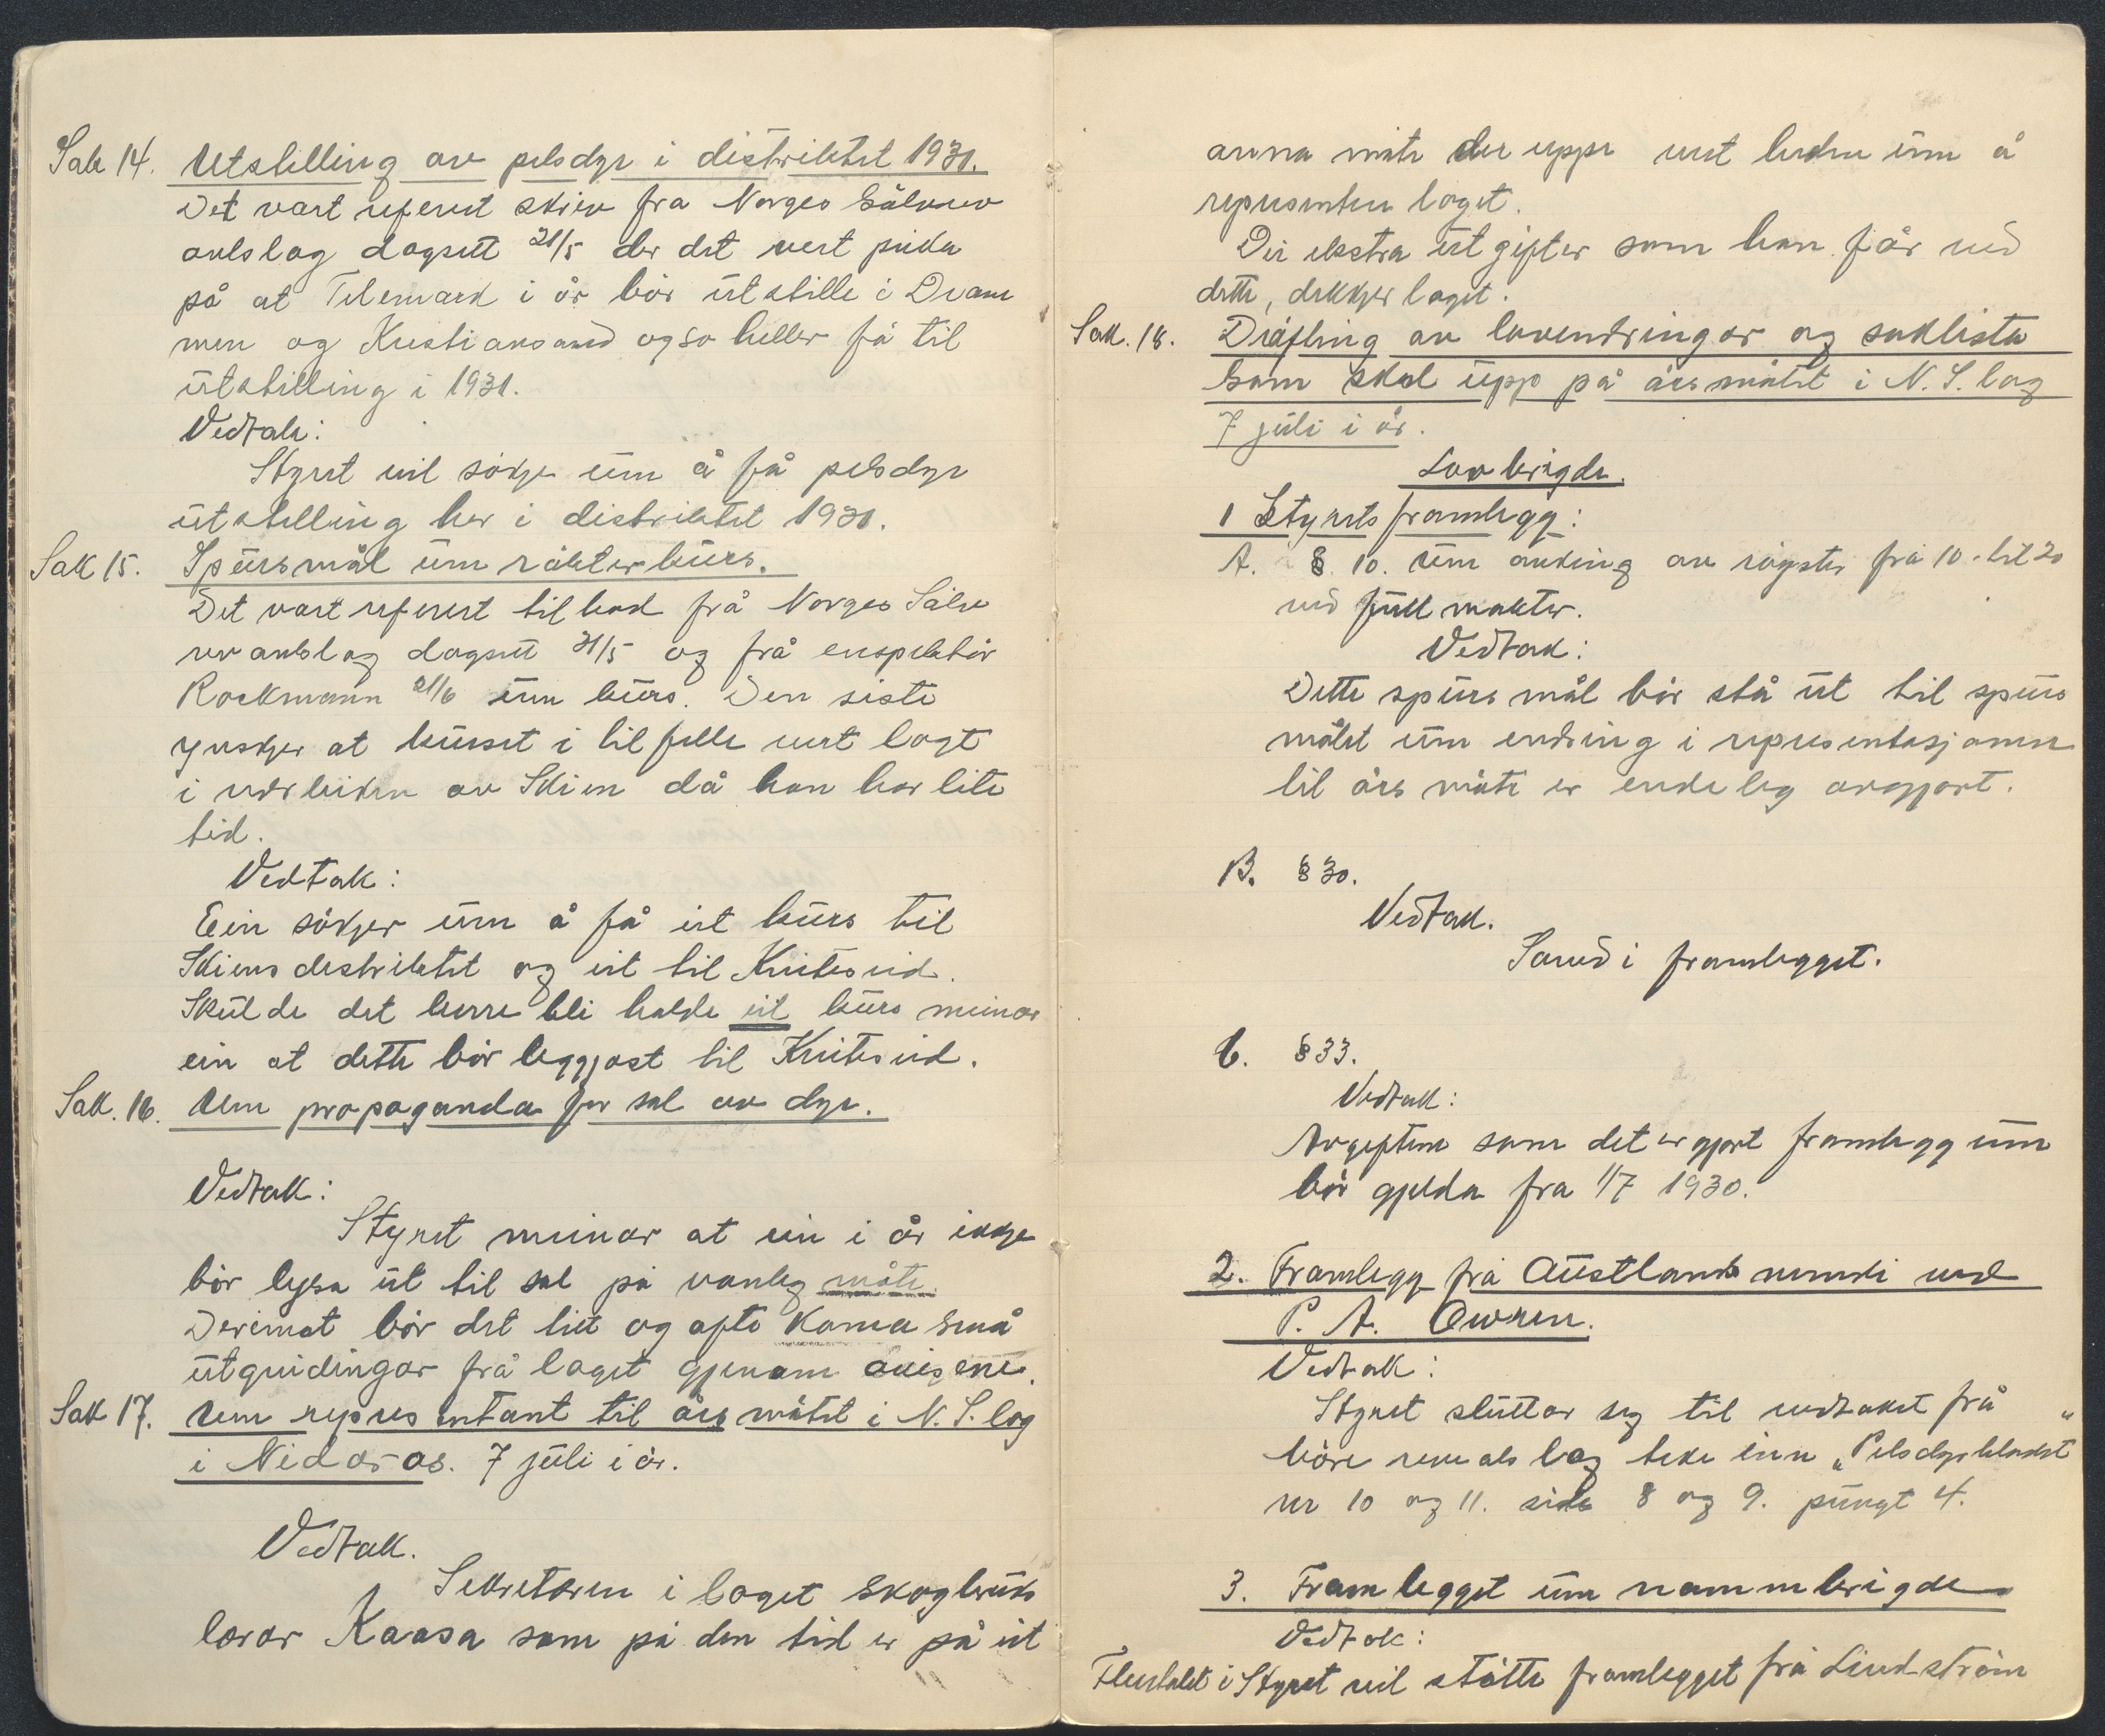 Sak 14. Utstilling av pelsdyr i distriktet 1931.
Det vart referert skriv fra Norges Sølvrev
avlslag dagsett 21/5 der det vert peika
på at Telemark i år bør utstille i Dram
men og Kristiansand og so heller få til
utstilling i 1931.
Vedtak:
Styret vil søkje um å få pelsdyr
utstelling her i distriktet 1931.
Sak 15. Spursmål um røkterkurs.
Det vart referert tilbod frå Norges Sølv
revavlslag dagsett 21/5 og frå enspektør
Rockmann 21/6 um kurs. Den siste
ynskjer at kurset i tilfelle vert lagt
i nærleiken av Skien då han har lite
tid.
Vedtak:
Ein søkjer um å få eit kurs til
Skiensdestriktet og eit til Kviteseid.
Skulde det berre bli halde eit kurs meinar
ein at dette bør leggjast til Kviteseid.
Sak. 16. Um propaganda for sal av dyr.
Vedtak:
Styret meinar at ein i år ikkje
bør lysa ut til sal på vanleg måte.
Derimot bør det litt og ofte koma små
utgreidingar frå laget gjenom avisene.
Sak 17. Um representant til årsmøtet i N. S. lag
i Nidaros. 7 juli i år.
Vedtak.
Sekretæren i laget skogbruks
lærar Kaasa som på den tid er på eit
anna møte der uppe vert beden um å
representere laget.
Dei ekstra utgifter som han får ved
dette, dekkjer laget.
Sak. 18. Drøfting av lovendringar og saklista
som skal upp på årsmøtet i N. S. lag
7 juli i år.
Lovbrigde.
1 Styrets framlegg:
A. § 10. Um auking av røyster frå 10 til 20
ved fullmakter.
Vedtak:
Dette spursmål bør stå ut til spurs
målet um endring i representasjonen
til årsmøte er endeleg avgjort.
B. § 30.
Vedtak.
Samd i framlegget.
C. § 33.
Vedtak:
Avgiften som det er gjort framlegg um
bør gjelda fra 1/7 1930.
2. Framlegg frå Austlandsnemndi ved
P. A. Owren.
Vedtak:
Styret sluttar seg til vedtaket frå
Børe revealslag teke inn „Pelsdyrbladet"
nr 10 og 11. side 8 og 9. pungt 4.
3. Framlegget um nammbrigde
Vedtak:
Fleirtalet i Styret vil støtte framlegget frå Lindström